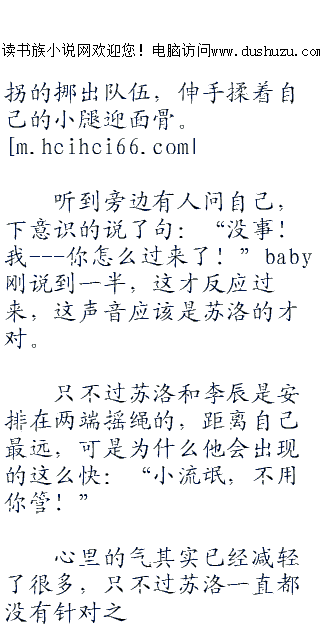 读书族小说网欢迎您！电脑访问www.dushuzu.com
拐的挪出队伍，伸手揉着自
己的小腿迎面骨。
[m.hcihci66.com|
听到旁边有人问自己，
下意识的说了句：“没事！
我---你怎么过来了！”baby
刚说到一半，这才反应过
来，这声音应该是苏洛的才
对。
只不过苏洛和李辰是安
排在两端摇绳的，距离自己
最远，可是为什么他会出现
的这么快：“小流氓，不用
你管！”
心里的气其实已经减轻
了很多，只不过苏洛一直都
没有针对之